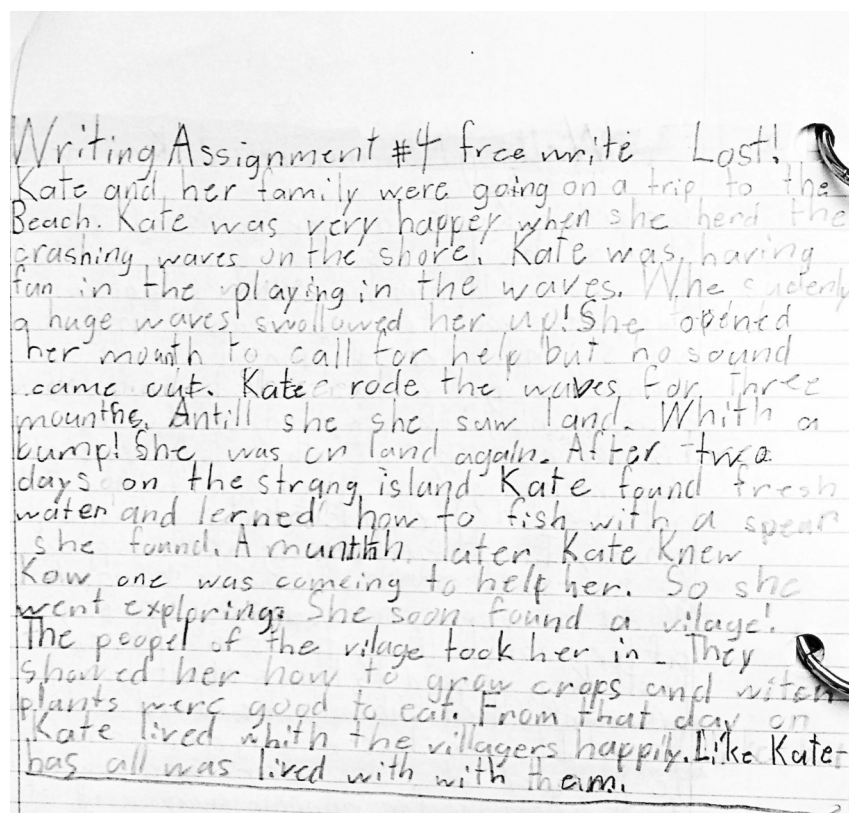 Writing Assignment #4 free write Lost!
Kate and her family were going on a trip to the
Beach. Kate was very happey when she herd the
crashing waves on the shore. Kate was having
fun in the playing in the waves. Whe sudenly
a huge waves swollowed her up! She opened
her mouth to call for help but no sound
came out. Kate rode the waves for three
mounths. Antill she she saw land. Whith a
bump! She was on land again. After two
days on the strang island Kate found fresh
water and lerned how to fish with a spear
she found. A munthh later Kate Knew
Know one was comeing to help her. So she
went exploring. She soon found a vilage!
The peopel of the vilage took her in. They
showed her how to grow crops and witch
plants were good to eat. From that day on
Kate lived whith the villagers happily. Like Kate
has all was lived with with them.